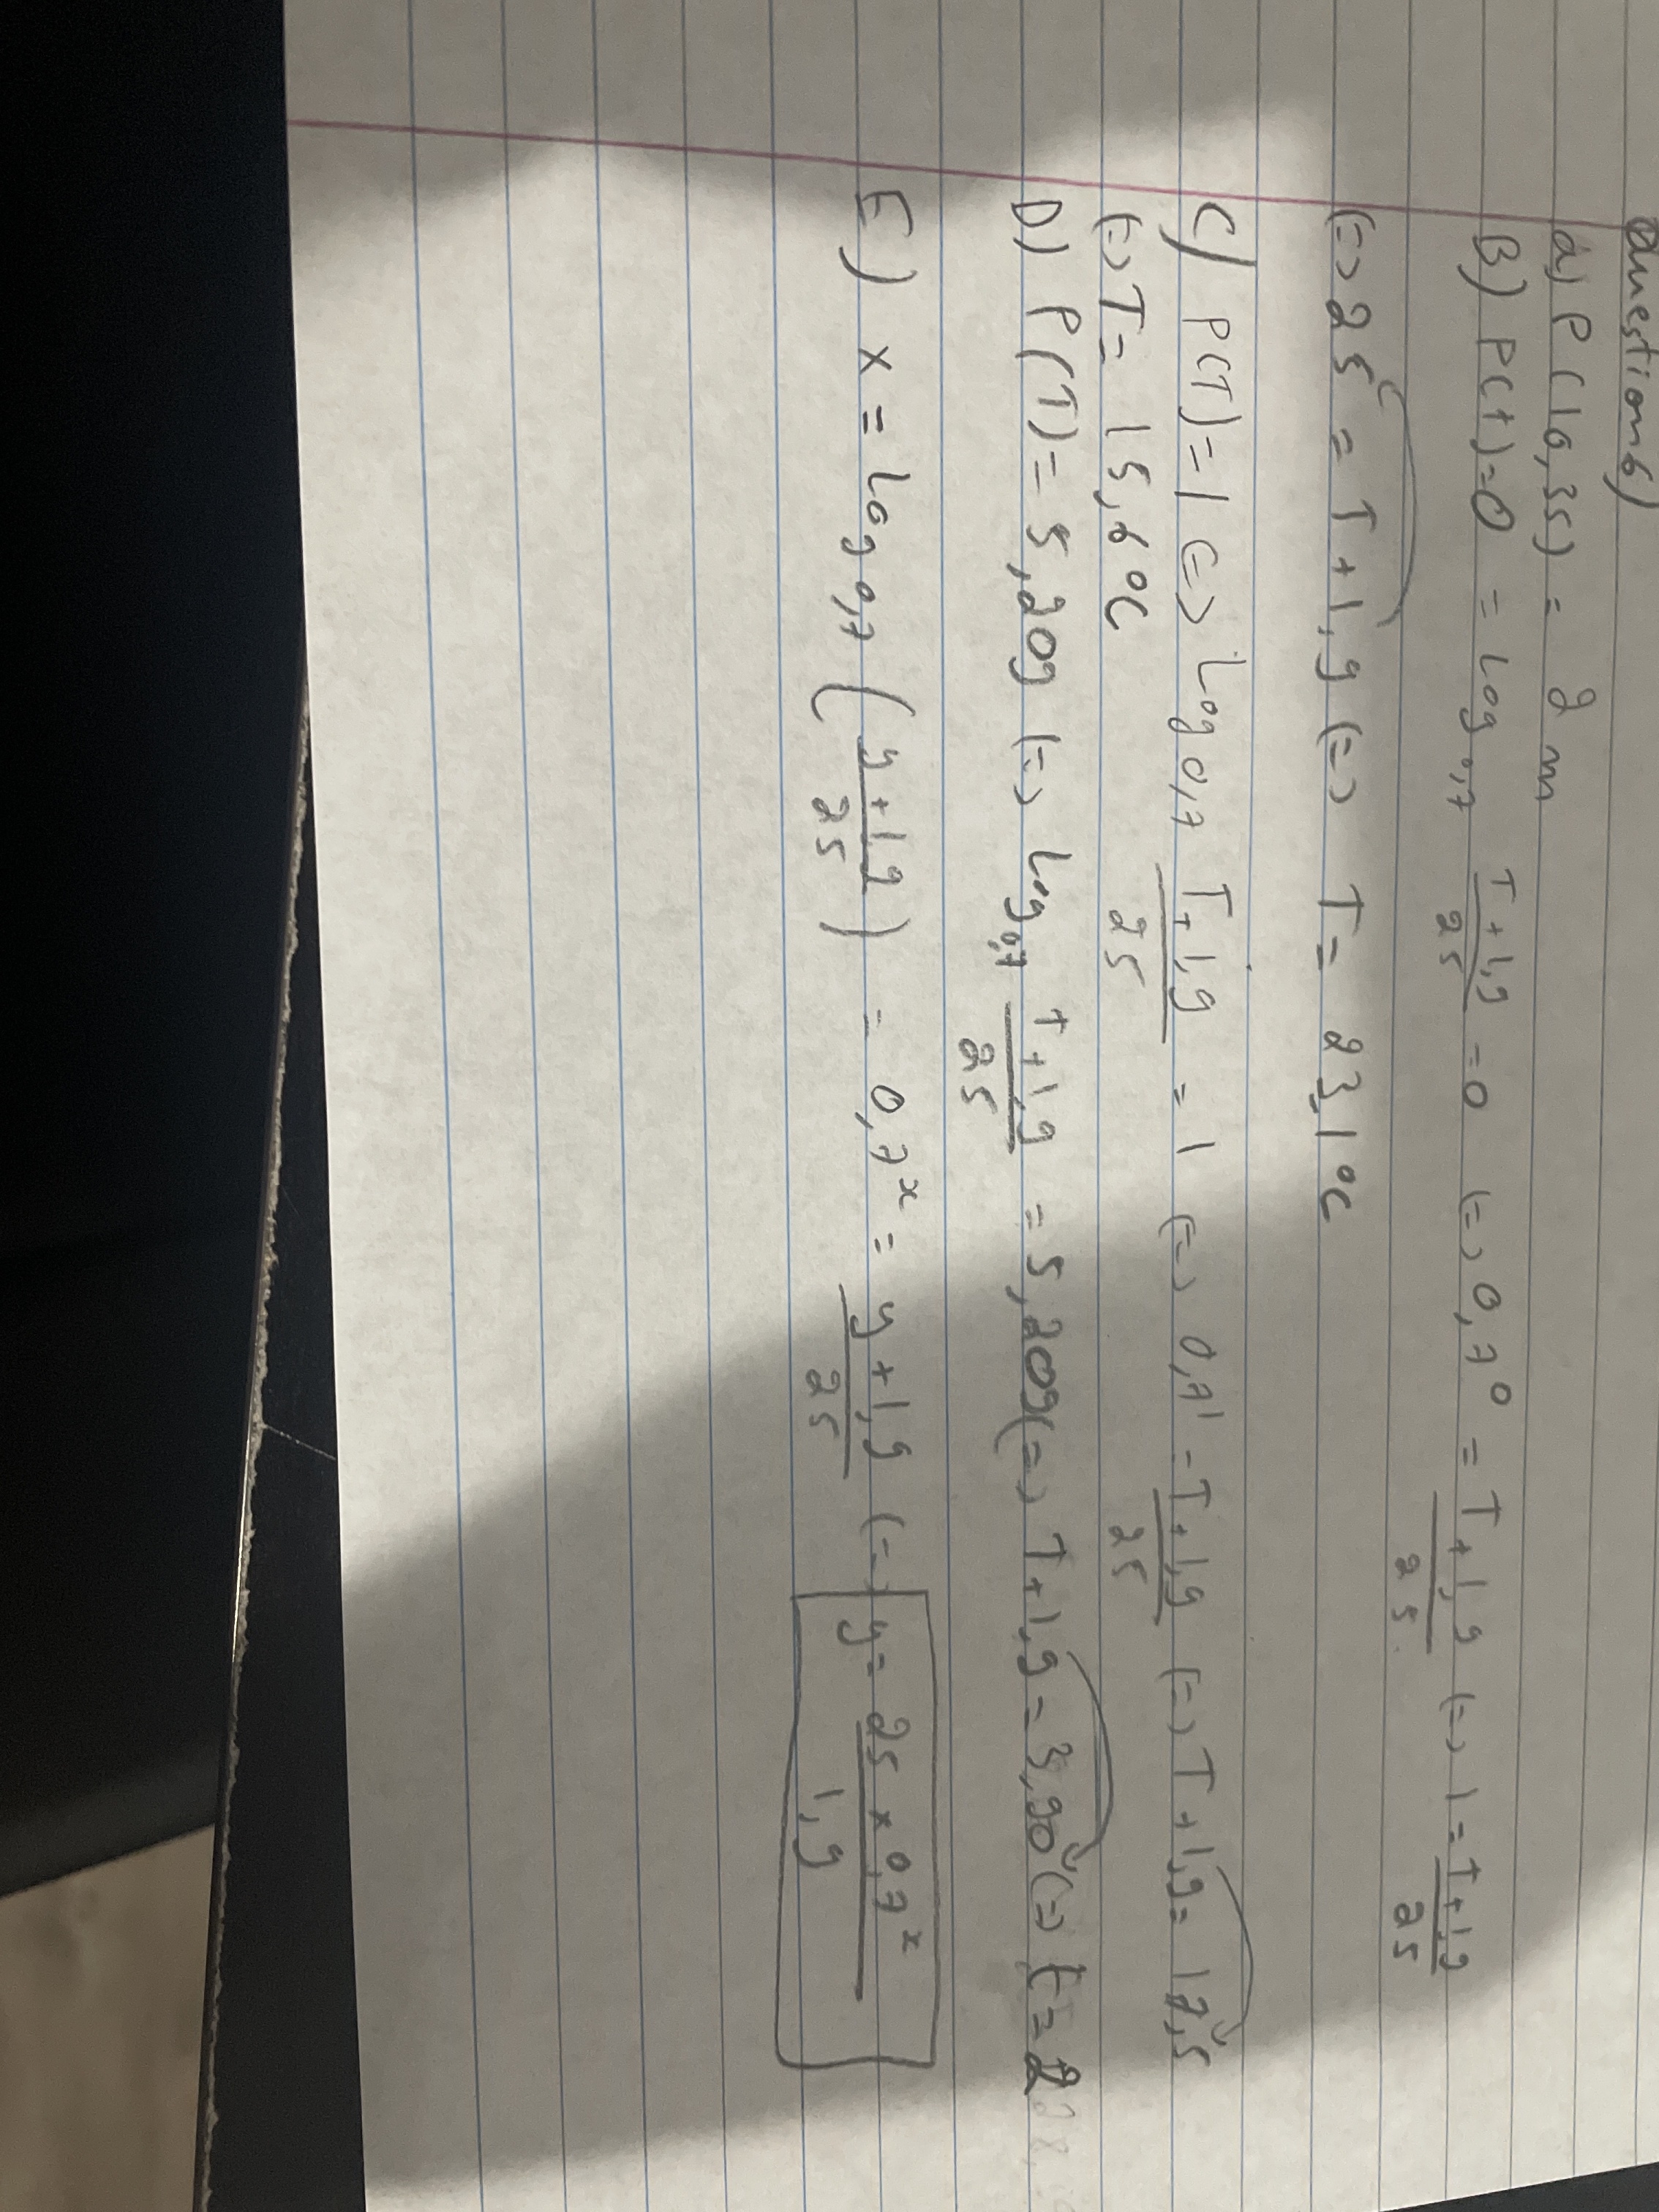 Question 6)
a) P(10,35) = 2 m
B) P(t)=0 = log 0,7 T+1,9/25 = 0 (=> 0,7⁰ = T+1,9/25 (=> 1 = T+1,9/25
(=> 25 = T+1,9 (=> T = 23,1°C
C) P(T)=1 (=> Log 0,7 T+1,9/25 = 1 (=> 0,7¹ = T+1,9/25 (=> T+1,9 = 17,5
(=> T = 15,6°C
D) P(T) = 5,209 (=> Log 0,7 T+1,9/25 = 5,209 (=> T+1,9 = 3,90 (=> t = 2
E) x = Log 0,7 (y+1,9/25) = 0,7ˣ = y+1,9/25 (=> y = 25 x 0,7ˣ/1,9